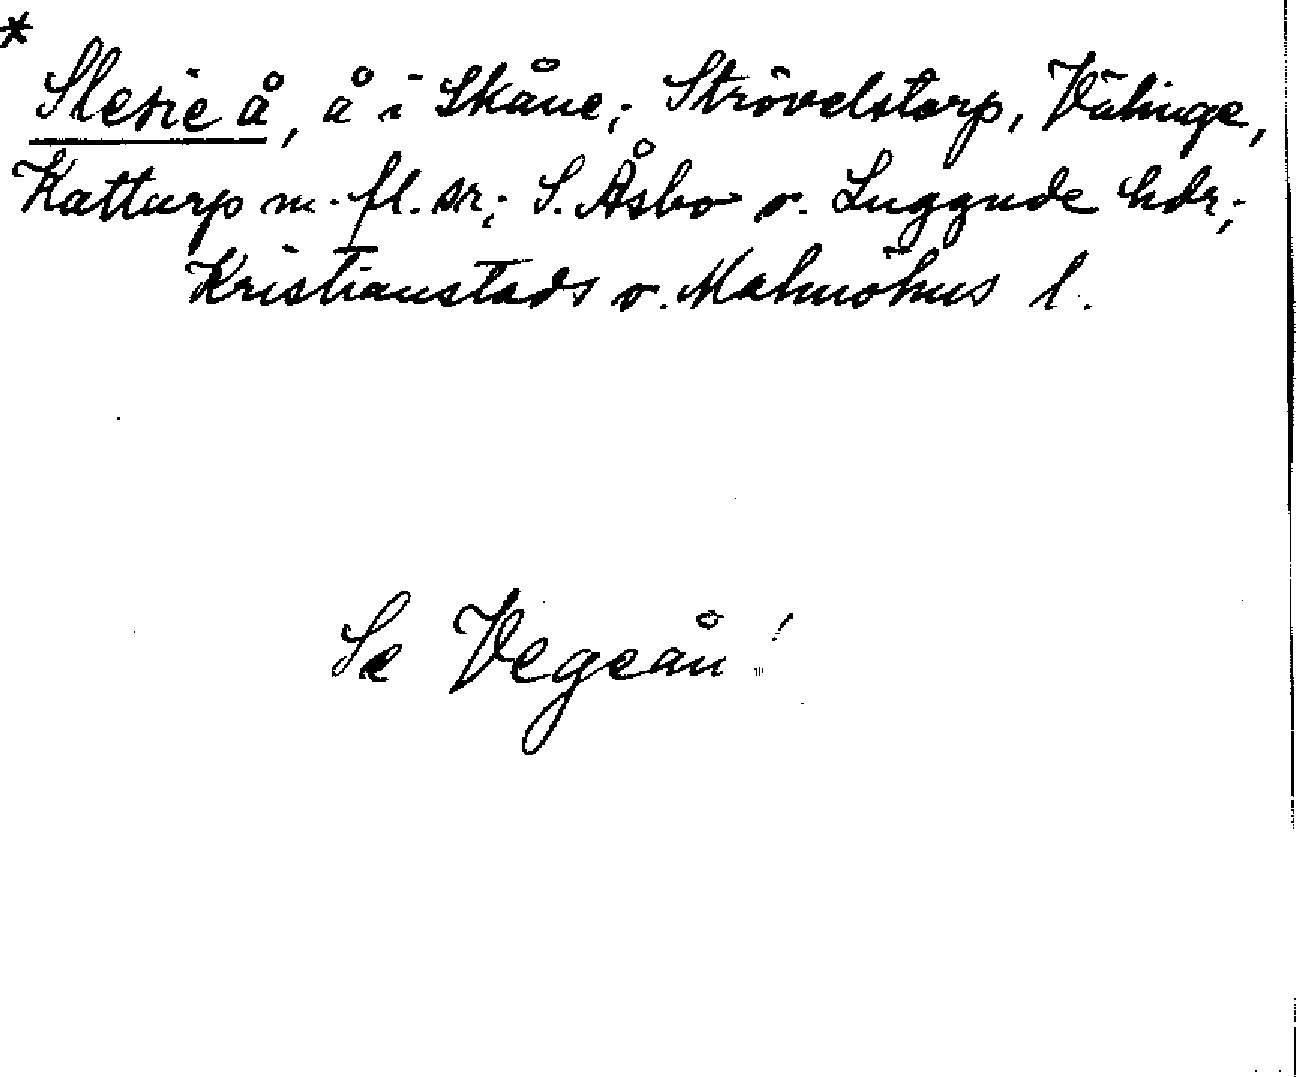 *
Slesie å, å i Skåne; Strövelstorp, Välinge,
Kattarp m. fl. snr; S. Åsbo o. Luggude hdr;
Kristianstads o. Malmöhus l.
Se Vegeån!